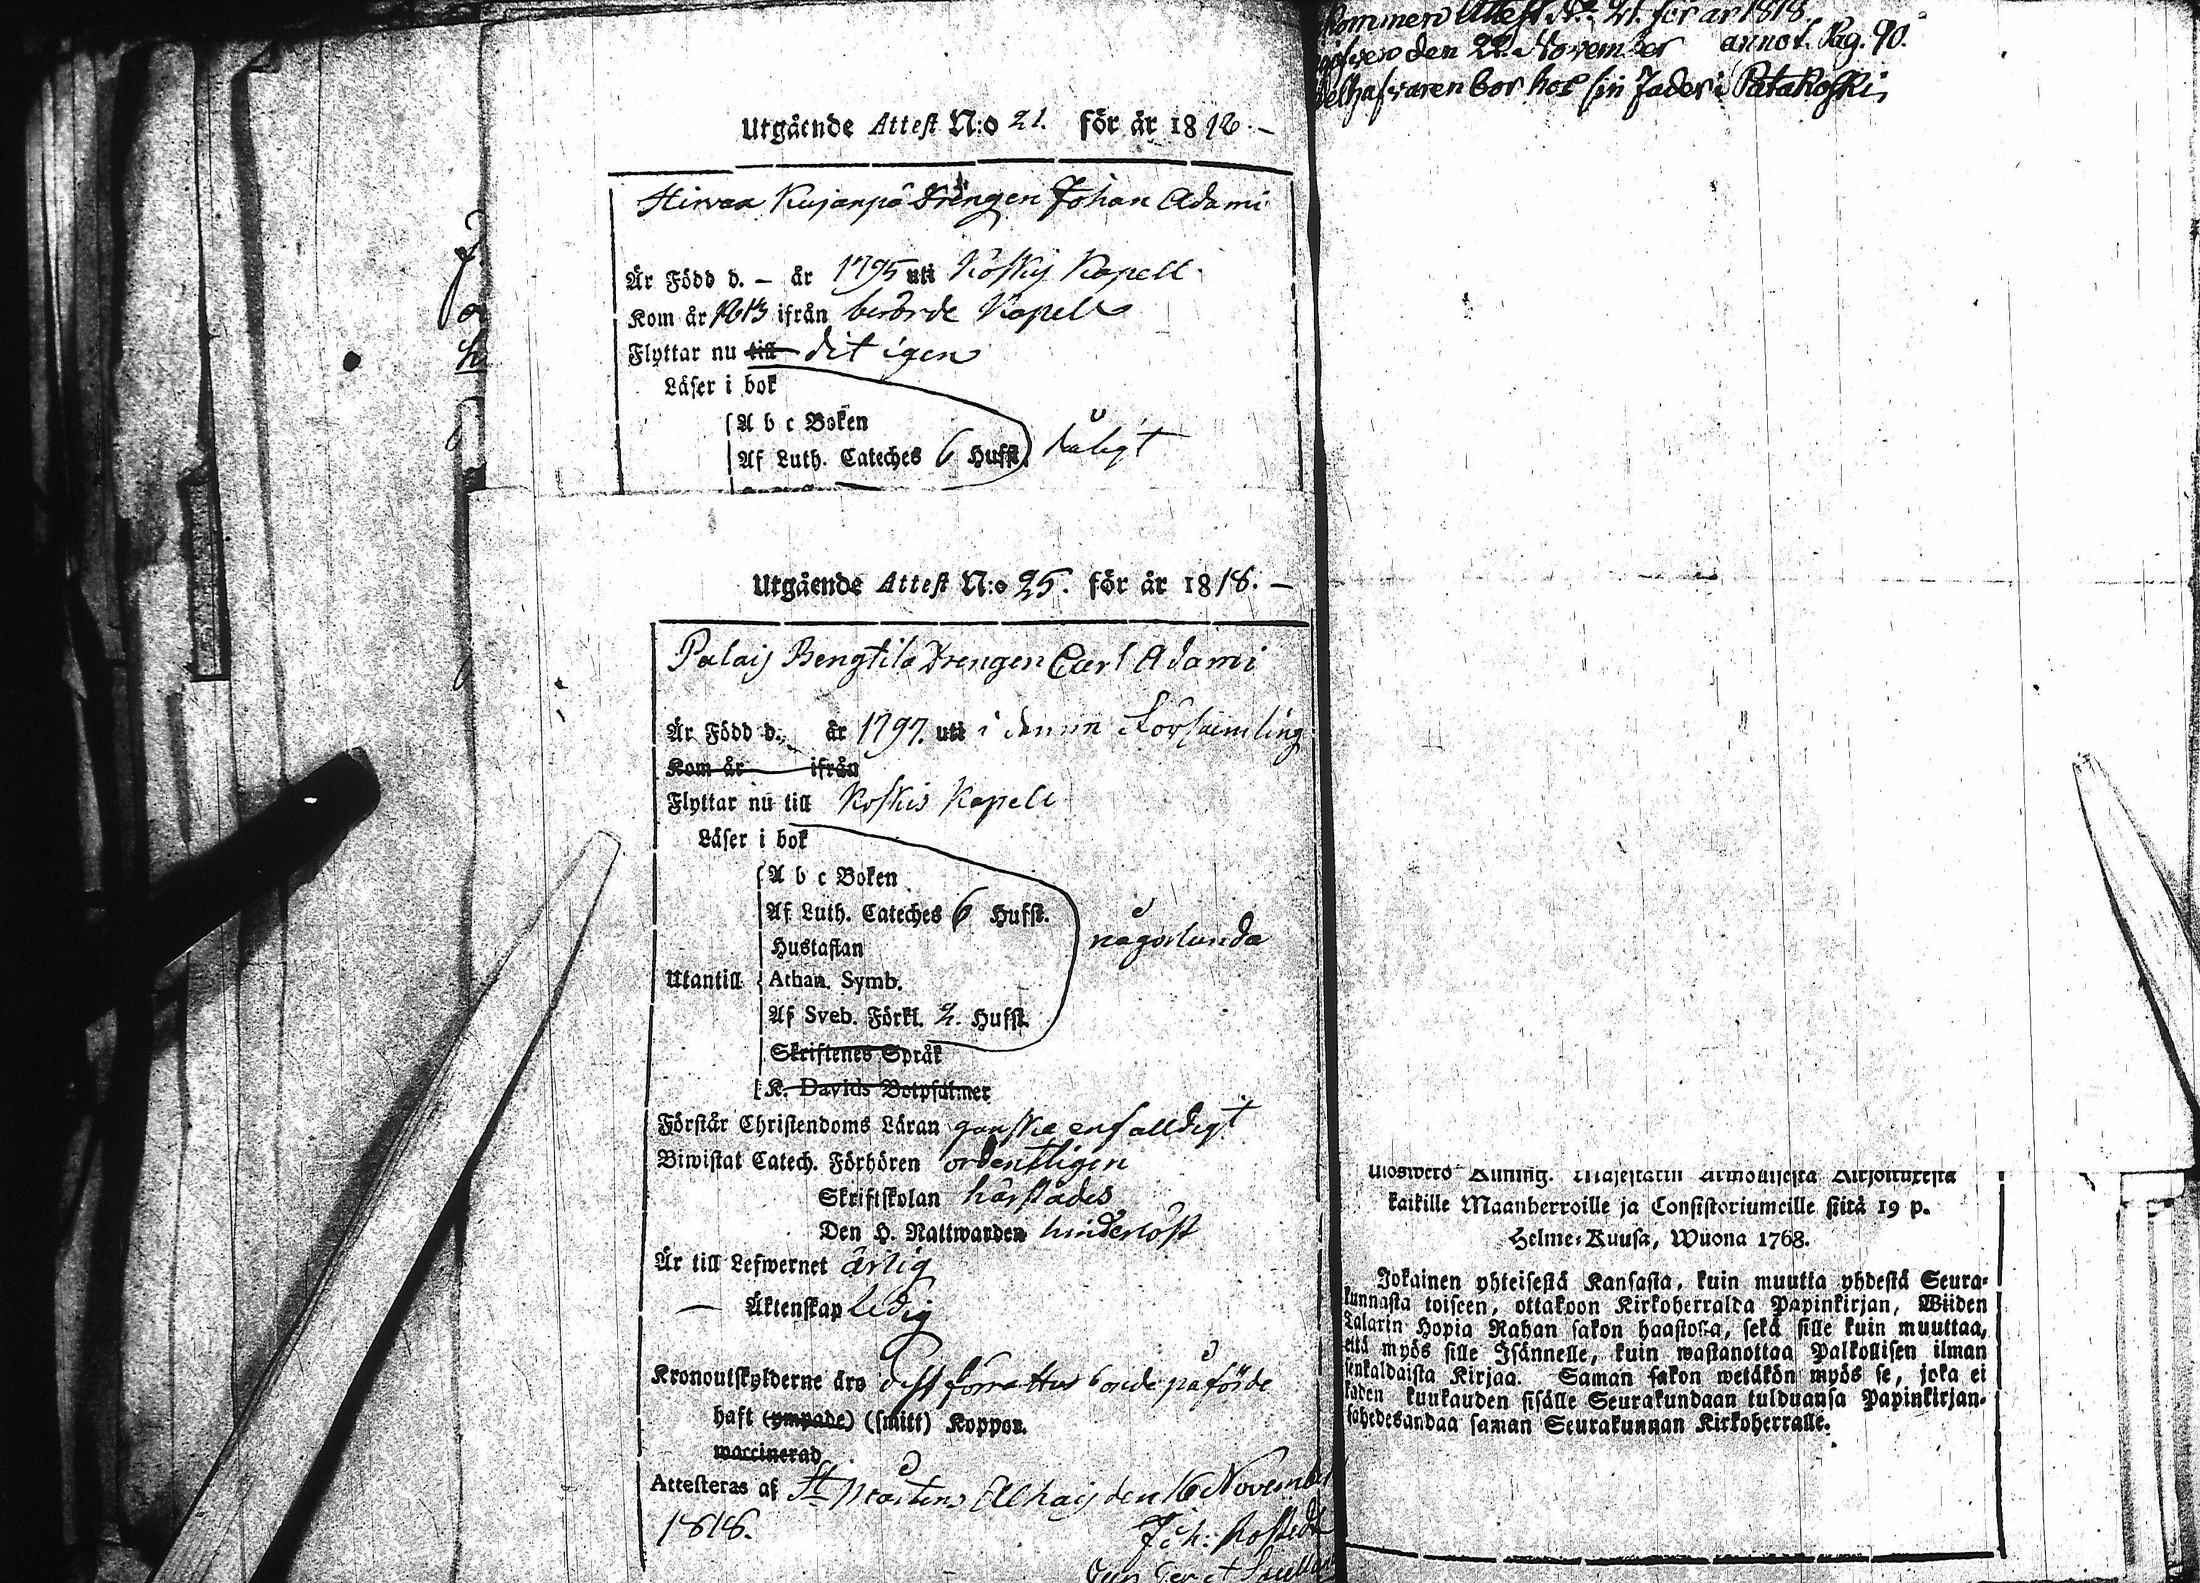 Utgående Attest N:o 21. för år 1818. –
Hirvas Kujanpä Drengen Johan Adami
Är Född d. – år 1795 uti Koskij Kapell
Kom år 1813 ifrån berörde Kapell
Flyttar nu till dit igen
Läser i bok
A b c Boken
Af Luth. Cateches 6 Hufst. dåligt
Utgående Attest N:o 25. för år 1818. –
Palaij Bengtila Drengen Carl Adami
Är Född d. år 1797. uti i denna Församling
Kom år ifrån
Flyttar nu till Koskis Kapell
Läser i bok
A b c Boken
Af Luth. Cateches 6 Hufst.
Hustaflan
någorlunda
Utantill Athan. Symb.
Af Sveb. Förkl. 2. Hufst.
Skriftenes Språk
K. Davids Botpsalmer
Förstår Christendoms Läran ganska enfalldigt
Biwistat Catech. Förhören ordentligen
Skriftskolan härstädes
Den H. Nattwarden hinderlöst
Är till Lefwernet ärlig
– Äktenskap ledig
Kronoutskylderne äro dess förra Husbonde påförde
haft (ympade) (smitt) Koppor.
waccinerad
Attesteras af St Mårtens Alhaij den 16 November
1818.
Joh: Rostedt
kommen Attest No. 21. för år 1818.
gifven den 22. November annot. Pag. 90.
bor hos sin Fader i Patakoski
Ulosweto Kuning. Majestetin Armollisesta Kirjoituxesta
kaikille Maanherroille ja Consistoriumeille siitä 19 p.
Helme-Kuusa, Wuona 1768.
Jokainen yhteisestä Kansasta, kuin muutta yhdestä Seura-
kunnasta toiseen, ottakoon Kirkoherralda Papinkirjan, Wiiden
Talarin Hopia Rahan sakon haastossa, sekä sille kuin muuttaa,
että myös sille Isännelle, kuin wastanottaa Palkollisen ilman
senkaldaista Kirjaa. Saman sakon wetäkön myös se, joka ei
kahden kuukauden sisälle Seurakundaan tulduansa Papinkirjan-
sa hdesandaa saman Seurakunnan Kirkoherralle.